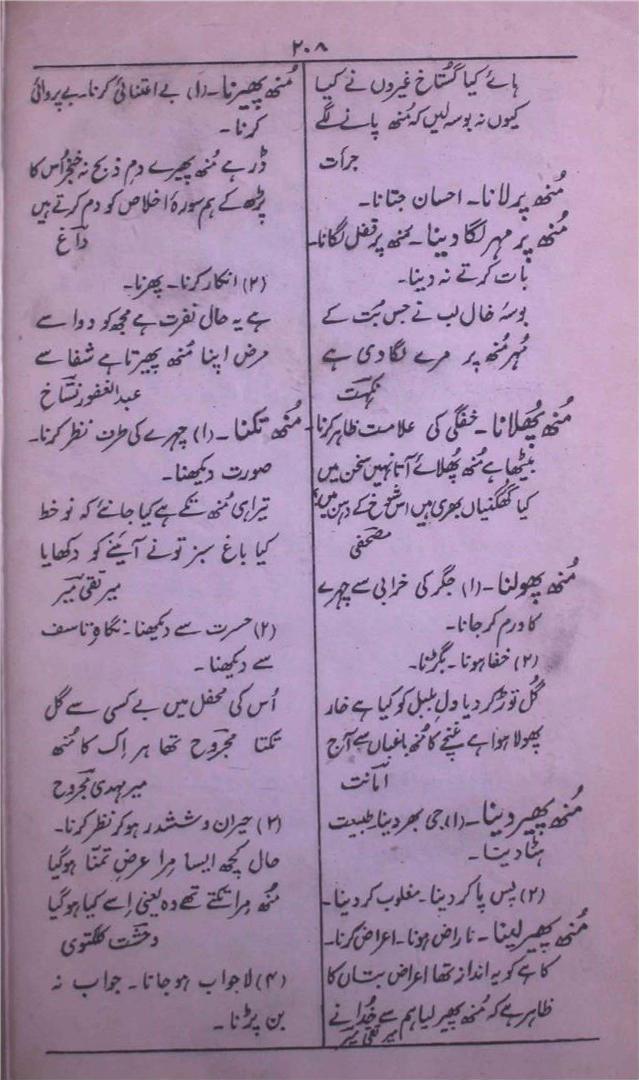 ۲۰۸
ہائے کیا گستاخ غیروں نے کیا
کیوں نہ بوسہ لیں کہ مُنھ پانے لگے
جرأت
مُنھ پر لانا۔ احسان جتانا۔
مُنھ پر مہر لگا دینا۔ مُنھ پر قفل لگانا۔
بات کرتے نہ دینا۔
بوسۂ خال لب نے جس بُت کے
مُہر مُنھ پر مرے لگا دی ہے
نکہت
مُنھ پھُلانا۔ خفگی کی علامت ظاہر کرنا۔
بیٹھا ہے مُنھ پھُلائے آتا نہیں سخن میں
کیا گھگنیاں بھری ہیں اس شوخ کے دہن میں
مصحفی
مُنھ پھولنا۔ (۱) جگر کی خرابی سے چہرے
کا ورم کر جانا۔
(۲) خفا ہونا۔ بگڑنا۔
گُل توڑ کر دیا دلِ بلبل کو کیا ہے خار
پھولا ہوا ہے غنچے کا مُنھ باغباں سے آج
امانت
مُنھ پھیر دینا۔ (۱) جی بھر دینا۔ طبیعت
ہٹا دینا۔
(۲) پس پا کر دینا۔ مغلوب کر دینا۔
مُنھ پھیر لینا۔ ناراض ہونا۔ اعراض کرنا۔
کا ہے کو یہ انداز تھا اعراض بتاں کا
ظاہر ہے کہ مُنھ پھیر لیا ہم سے خُدا نے
میر تقی میر
مُنھ پھیرنا۔ (۱) بے اعتنائی کرنا۔ بے پروائی
کرنا۔
ڈر ہے مُنھ پھیرے دمِ ذبح نہ خنجر اُس کا
پڑھ کے ہم سورۂ اخلاص کو دم کرتے ہیں
داغ
(۲) انکار کرنا۔ پھرنا۔
ہے یہ حال نفرت ہے مجھ کو دوا سے
مرض اپنا مُنھ پھیرتا ہے شفا سے
عبدالغفور نسّاخ
مُنھ تکنا۔ (۱) چہرے کی طرف نظر کرنا۔
صورت دیکھنا۔
تیرا ہی مُنھ تکے ہے کیا جانئے کہ نو خط
کیا باغ سبز تو نے آئینے کو دکھایا
میر تقی میر
(۲) حسرت سے دیکھنا۔ نگاہِ تاسف
سے دیکھنا۔
اُس کی محفل میں بے کسی سے گل
تکتا مجروح تھا ہر اِک کا مُنھ
میر مہدی مجروح
(۳) حیران و ششدر ہو کر نظر کرنا۔
حال کچھ ایسا مِرا عرضِ تمنّا ہو گیا
مُنھ مِرا تکتے تھے وہ یعنی اِسے کیا ہو گیا
وحشت کلکتوی
(۴) لاجواب ہو جانا۔ جواب نہ
بن پڑنا۔